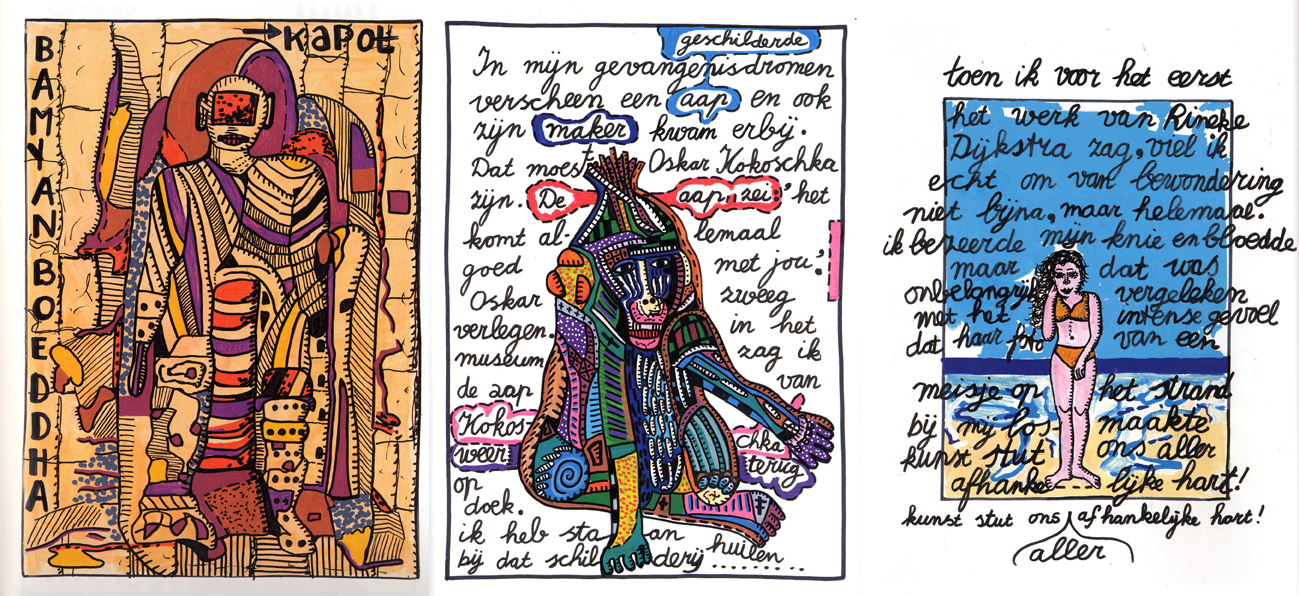 BAMYAN BOEDDHA
→ KAPOT
geschilderde
In mijn gevangenisdromen
verscheen een aap en ook
zijn maker kwam erbij.
Dat moest Oskar Kokoschka
zijn. De aap zei: 'het
komt al- lemaal
goed met jou.'
Oskar zweeg
verlegen. in het
museum zag ik
de aap van
Kokos- chka
weer terug
op
doek.
ik heb sta an
bij dat schil derij huilen..........
toen ik voor het eerst
het werk van Rineke
Dijkstra zag, viel ik
echt om van bewondering
niet bijna, maar helemaal.
ik bezeerde mijn knie en bloedde
maar dat was
onbelangrijk vergeleken
met het intense gevoel
dat haar foto van een
meisje op het strand
bij mij los- maakte
kunst stut ons aller
afhanke lijke hart!
kunst stut ons afhankelijke hart!
aller